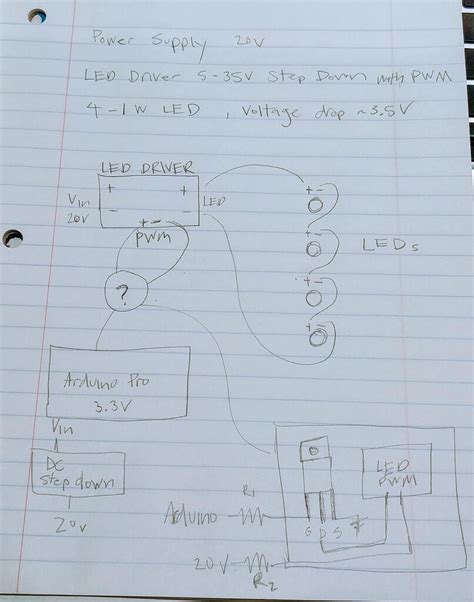 Power Supply 20V
LED Driver 5-35V Step Down with PWM
4-1W LED, Voltage drop ~3.5V
LED DRIVER
+ +
Vin
20V
- -
LED
+ -
PWM
?
+ -
+ -
LEDs
+ -
+ -
Arduino Pro
3.3V
Vin
DC
Step down
20V
LED
PWM
R1
Arduino
G D S
20V
R2